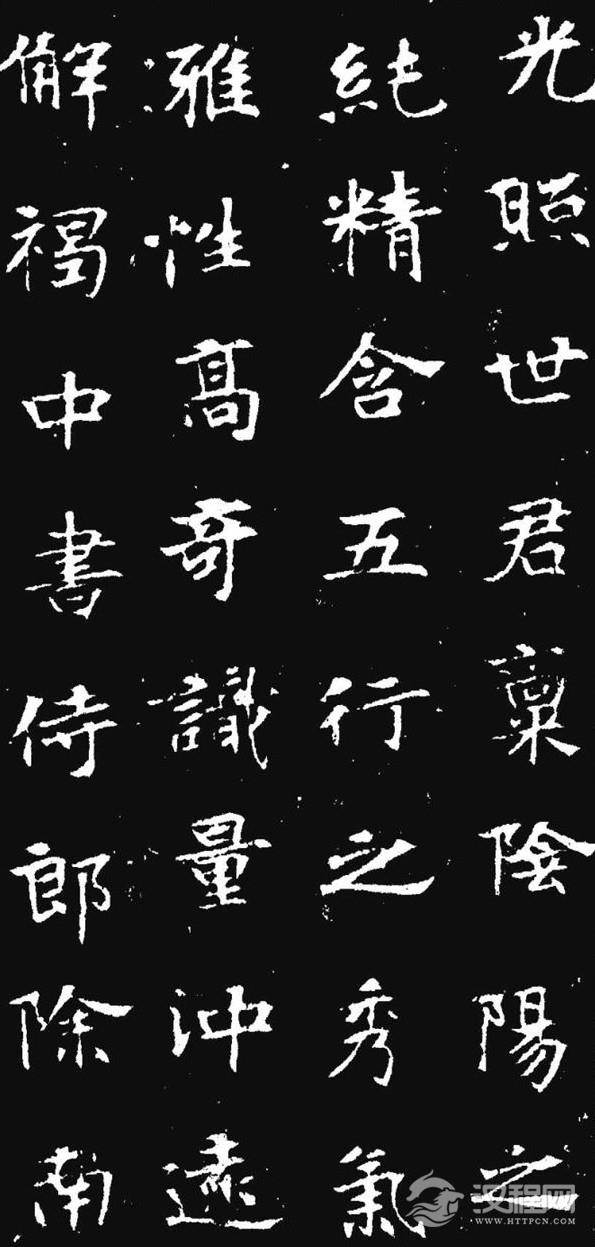 光照世君稟陰陽之
純精含五行之秀氣
雅性高奇識量沖遠
解褐中書侍郎除南
汉程网
WWW.HTTPCN.COM